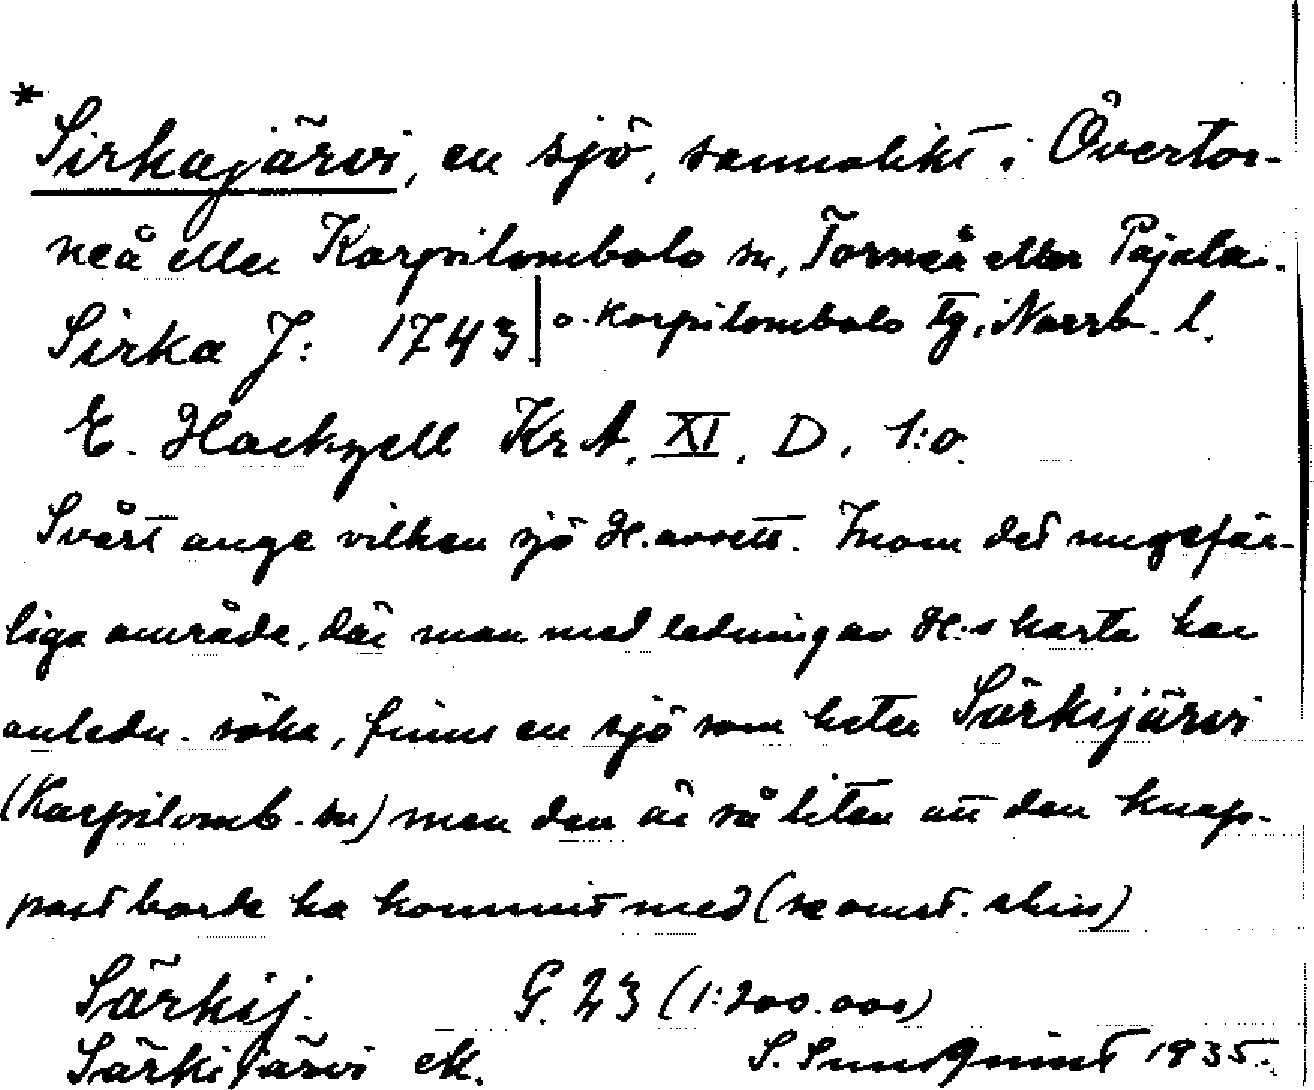 * Sirkajärvi, en sjö, sannolikt i Övertor-
neå eller Korpilombolo sn, Torneå eller Pajala
Sirka J: 1743 | o. Korpilombolo tg, Norrb. l.
E. Hackzell Kr A. XI. D. 1:o.
Svårt ange vilken sjö H. avsett. Inom det ungefär-
liga område, där man med ledning av H:s karta har
anledn. söka, finns en sjö som heter Särkijärvi
(Korpilomb. sn) men den är så liten att den knap-
past borde ha kommit med (se omst. skiss)
Särkij. G. 23 (1:200.000)
Särkijärvi ek. S. Sundquist 1935.